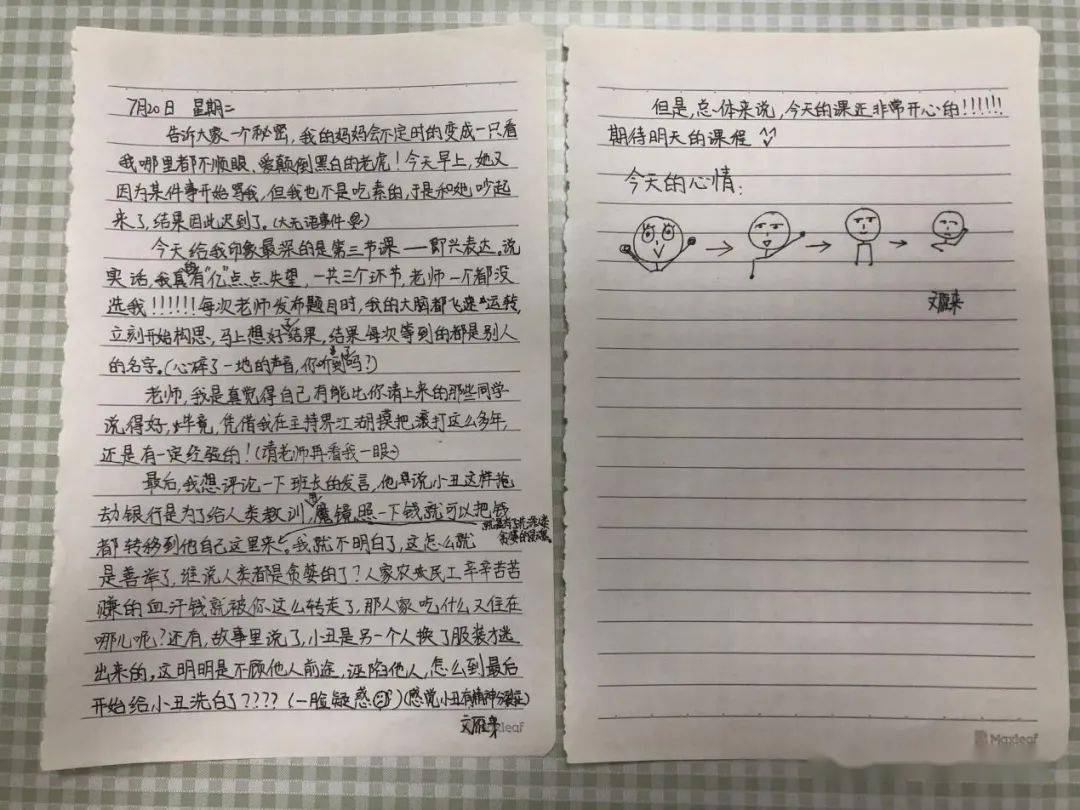 7月20日 星期二
告诉大家一个秘密,我的妈妈会不定时的变成一只看
我哪里都不顺眼、爱颠倒黑白的老虎!今天早上,她又
因为某件事开始骂我,但我也不是吃素的,于是和她吵起
来了,结果因此迟到了。(大无语事件)
今天给我印象最深的是第三节课——即兴表达。说
实话,我真的有“亿”点点失望,一共三个环节,老师一个都没
选我!!!!!!每次老师发布题目时,我的大脑都飞速运转,
立刻开始构思,马上想好了结果,结果每次等到的都是别人
的名字。(心碎了一地的声音,你听到了吗?)
老师,我是真觉得自己有能比你请上来的那些同学
说得好,毕竟,凭借我在主持界江湖摸把滚打这么多年,
还是有一定经验的!(请老师再看我一眼~)
最后,我想评论一下班长的发言,他具说小丑这样抢
劫银行是为了给人类教训,魔镜照一下钱就可以把钱
都转移到他自己这里来。我就不明白了,这怎么就
是善举了,谁说人类都是贪婪的了?人家农民工辛辛苦苦
赚的血汗钱就被你这么转走了,那人家吃什么又住在
哪儿呢?还有,故事里说了,小丑是另一个人换了服装才逃
出来的,这明明是不顾他人前途,诬陷他人,怎么到最后
开始给小丑洗白了????(一脸疑惑)(感觉小丑有精神分裂症)
文雁来
但是,总体来说,今天的课还非常开心的!!!!!!
期待明天的课程
今天的心情:
文雁来
Maxleaf